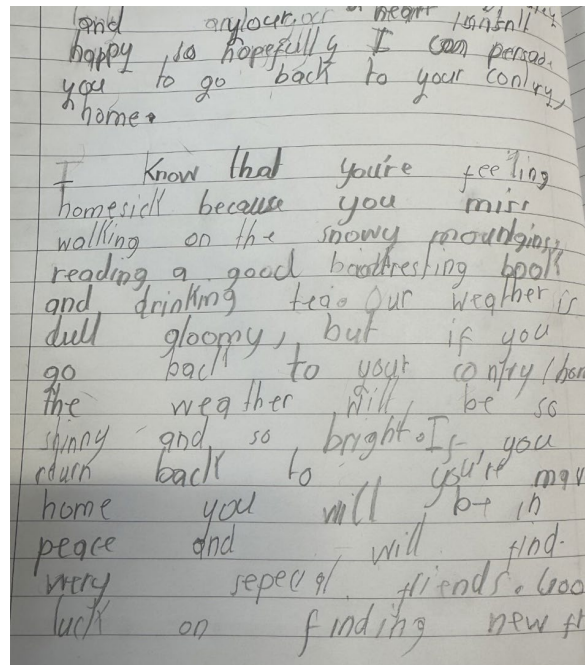 and heart
happy so hopefully I can persad
you to go back to your contry,
home.
I know that you're feeling
homesick because you miss
walking on the snowy moundgins,
reading a good book
and drinking tea. Our weather is
dull gloomy, but if you
go back to your contry/hom
the weather will, be so
shinny and, so bright. If you
rturn back to you're mav
home you will be in
peace and will find.
very sepecial friends. Goo
luck on finding new fr